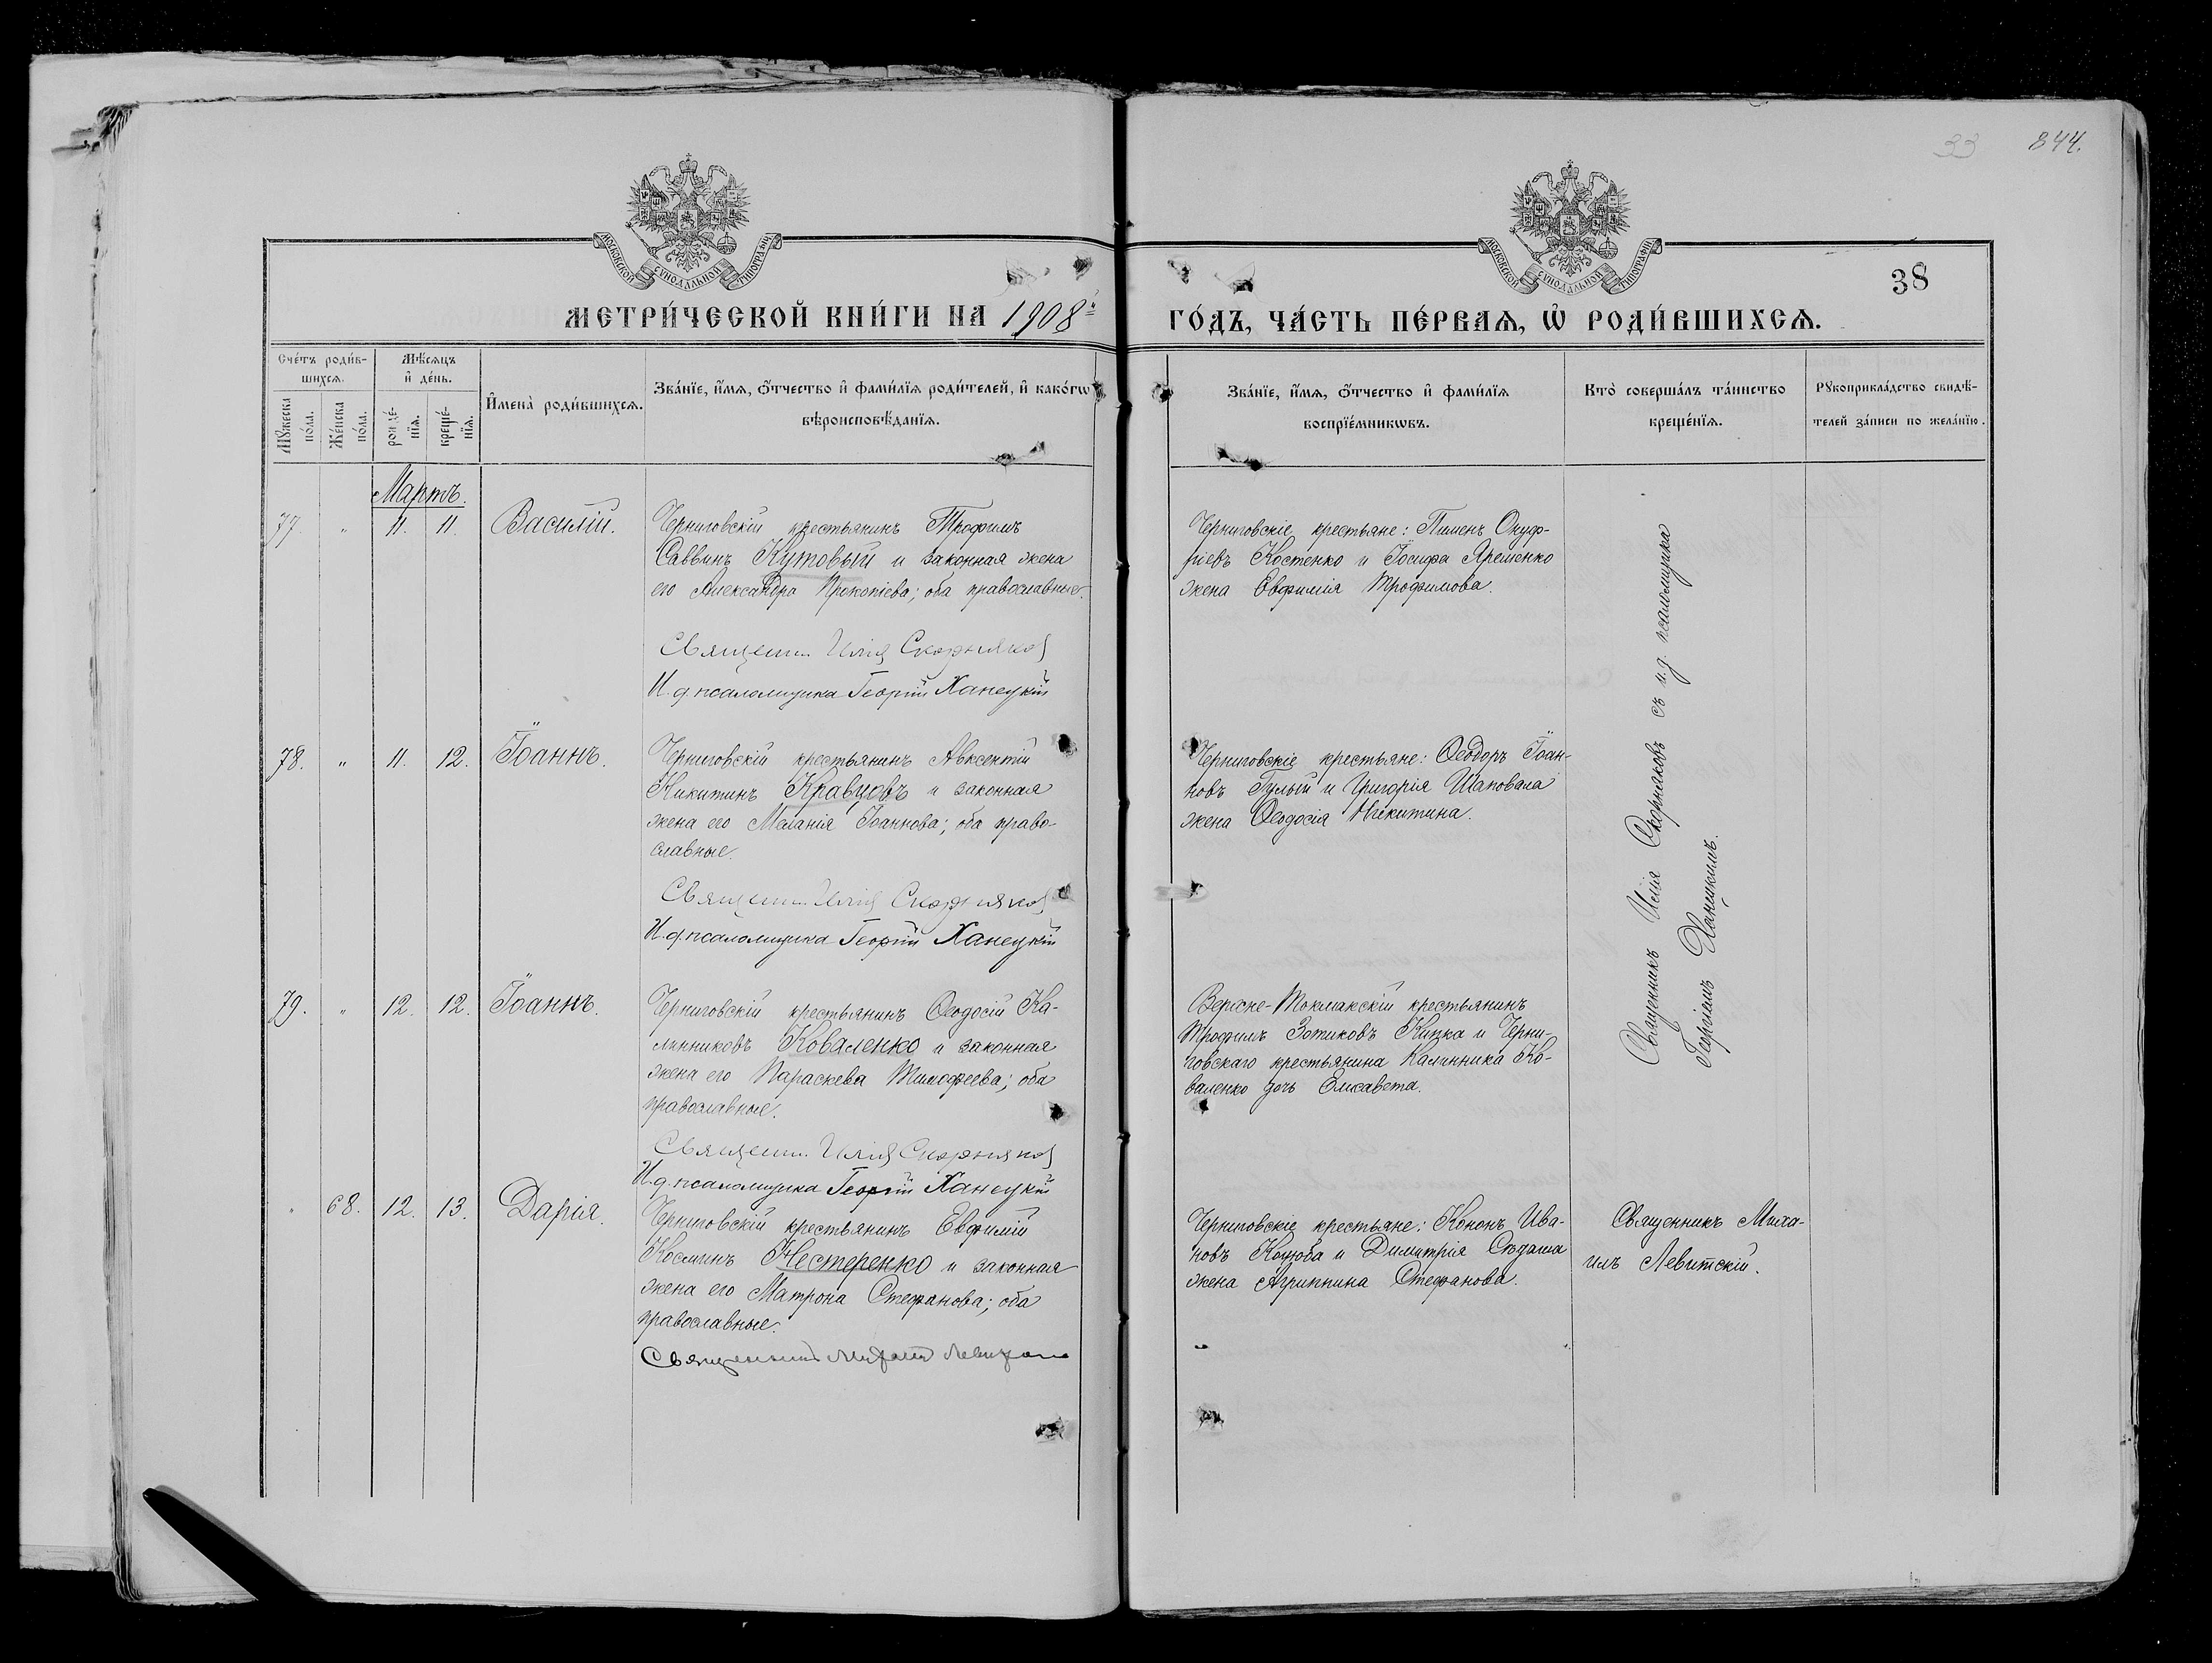 33 844.
МОСКОВСКОЙ СѴНОДАЛЬНОЙ ТИПОГРАФІИ
МОСКОВСКОЙ СѴНОДАЛЬНОЙ ТИПОГРАФІИ
38
МЕТРИ́ЧЕСКОЙ КНИ́ГИ НА 1908й ГО́ДЪ, ЧА́СТЬ ПЕ́РВАѦ, Ѡ РОДИ́ВШИХСѦ.
Сче́тъ роди́в-
шихсѧ.
Мꙋ́жеска по́ла.
Же́нска по́ла.
Мѣ́сѧцъ
и҆ де́нь.
рожде́-
нїѧ.
креще́-
нїѧ.
И҆мена̀ роди́вшихсѧ.
Зва́нїе, и҆́мѧ, ѻ҆́тчество и҆ фами́лїѧ роди́телей, и҆ како́гѡ
вѣроисповѣ́данїѧ.
Зва́нїе, и҆́мѧ, ѻ҆́тчество и҆ фами́лїѧ
воспрїе́мникѡвъ.
Кто̀ соверша́лъ та́инство
креще́нїѧ.
Рꙋкоприкла́дство свидѣ́-
телей за́писи по жела́нїю.
Мартъ.
77. " 11. 11. Василій.
Черниговскій крестьянинъ Трофимъ
Саввинъ Кутовый и законная жена
его Александра Прокопіева; оба православные.
Священн. Илія Скорняков
И. д. псаломщика Георгій Ханецкій
Черниговскіе крестьяне: Пименъ Онуф-
ріевъ Костенко и Іосифа Яременко
жена Евфимія Трофимова.
78. " 11. 12. Іоаннъ.
Черниговскій крестьянинъ Авксентій
Никитинъ Кравцовъ и законная
жена его Меланія Іоаннова; оба право-
славные.
Священн. Илія Скорняков
И. д. псаломщика Георгій Ханецкій
Черниговскіе крестьяне: Ѳеодоръ Іоан-
новъ Гулый и Григорія Шаповала
жена Ѳеодосія Никитина.
79. " 12. 12. Іоаннъ.
Черниговскій крестьянинъ Ѳеодосій Ка-
линниковъ Коваленко и законная
жена его Параскева Тимофеева; оба
православные.
Священн. Илія Скорняков
И. д. псаломщика Георгій Ханецкій
Верхне-Токмакскій крестьянинъ
Трофимъ Зотиковъ Кишка и Черни-
говскаго крестьянина Калинника Ко-
валенко дочь Елисавета.
Священникъ Илія Скорняковъ съ и.д. псаломщика
Георгіемъ Ханецкимъ.
" 68. 12. 13. Дарія.
Черниговскій крестьянинъ Евфимій
Космичъ Нестеренко и законная
жена его Матрона Стефанова; оба
православные.
Священникъ Михаилъ
Черниговскіе крестьяне: Кононъ Ива-
новъ Коцюба и Димитрія
жена Агриппина Стефанова.
Священникъ Миха-
илъ Левитскій.